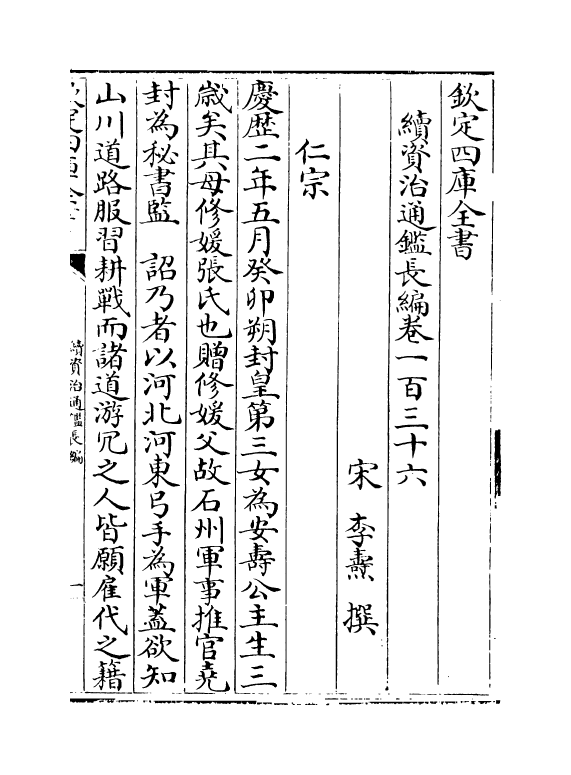 欽定四庫全書
續資治通鑑長編卷一百三十六
宋 李燾 撰
仁宗
慶歴二年五月癸卯朔封皇第三女為安壽公主生三
歲矣其母修媛張氏也贈修媛父故石州軍事推官堯
封為秘書監 詔乃者以河北河東弓手為軍蓋欲知
山川道路服習耕戰而諸道游冗之人皆願雇代之籍
欽定四庫全書
續資治通鑑長編
一